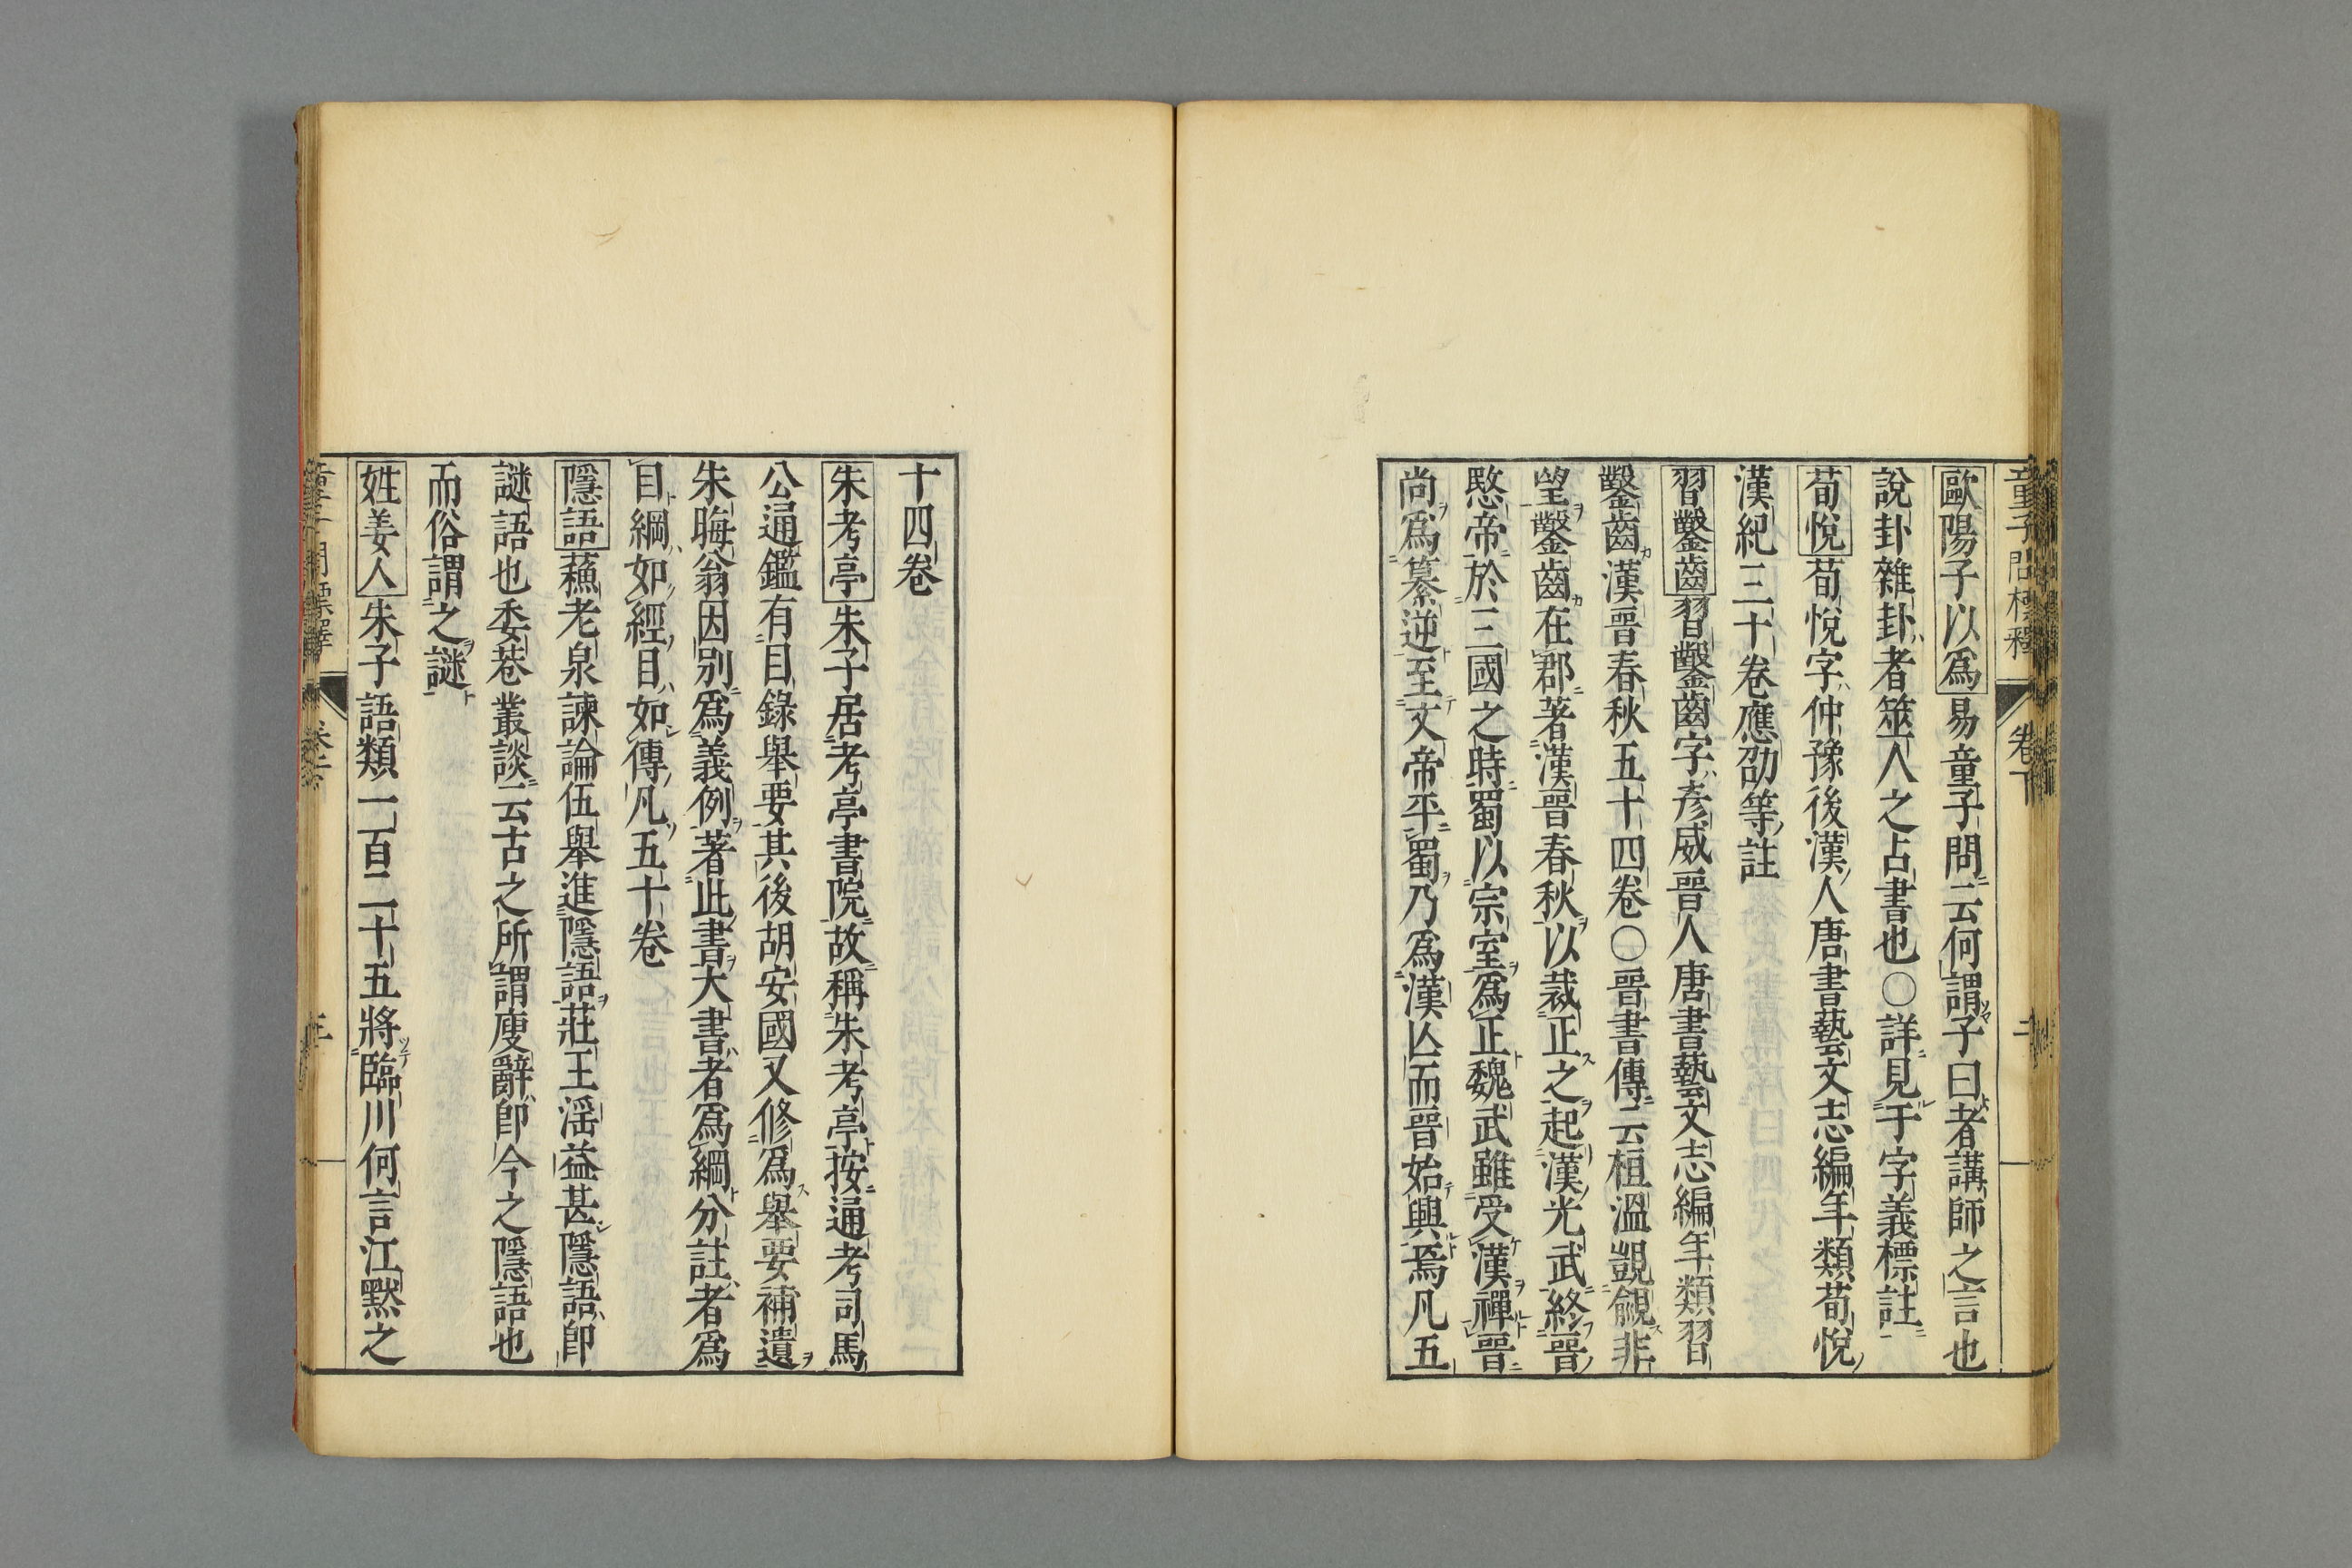 童子問標釋 卷下 二
歐陽子以爲易童子問云何謂子曰者講師之言也
說卦雜卦者筮人之占書也〇詳見于字義標註
荀悅荀悅字仲豫後漢人唐書藝文志編年類荀悅
漢紀三十卷應劭等註
習鑿齒習鑿齒字彥威晉人唐書藝文志編年類習
鑿齒漢晉春秋五十四卷〇晉書傳云桓溫覬覦非
望鑿齒在郡著漢晉春秋以裁正之起漢光武終晉
愍帝於三國之時蜀以宗室爲正魏武雖受漢禪晉
尚爲篡逆至文帝平蜀乃爲漢亾而晉始興焉凡五
十四卷
朱考亭朱子居考亭書院故稱朱考亭按通考司馬
公通鑑有目錄舉要其後胡安國又修爲舉要補遺
朱晦翁因別爲義例著此書大書者爲綱分註者爲
目綱如經目如傳凡五十卷
隱語蘓老泉諫論伍舉進隱語莊王滛益甚隱語卽
謎語也委巷叢談云古之所謂廋辭卽今之隱語也
而俗謂之謎
姓姜人朱子語類一百二十五將臨川何言江默之